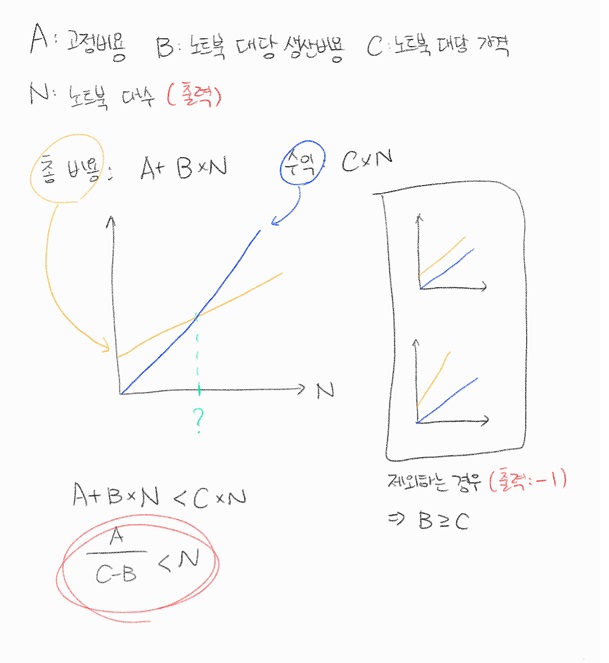 A: 고정비용 B: 노트북 대당 생산비용 C: 노트북 대당 가격
N: 노트북 대수 (출력)
총 비용: A+ B×N 수익 C×N
N
?
A+B×N < C×N
A
C-B
< N
제외하는 경우 (출력: -1)
⇒ B ≥ C